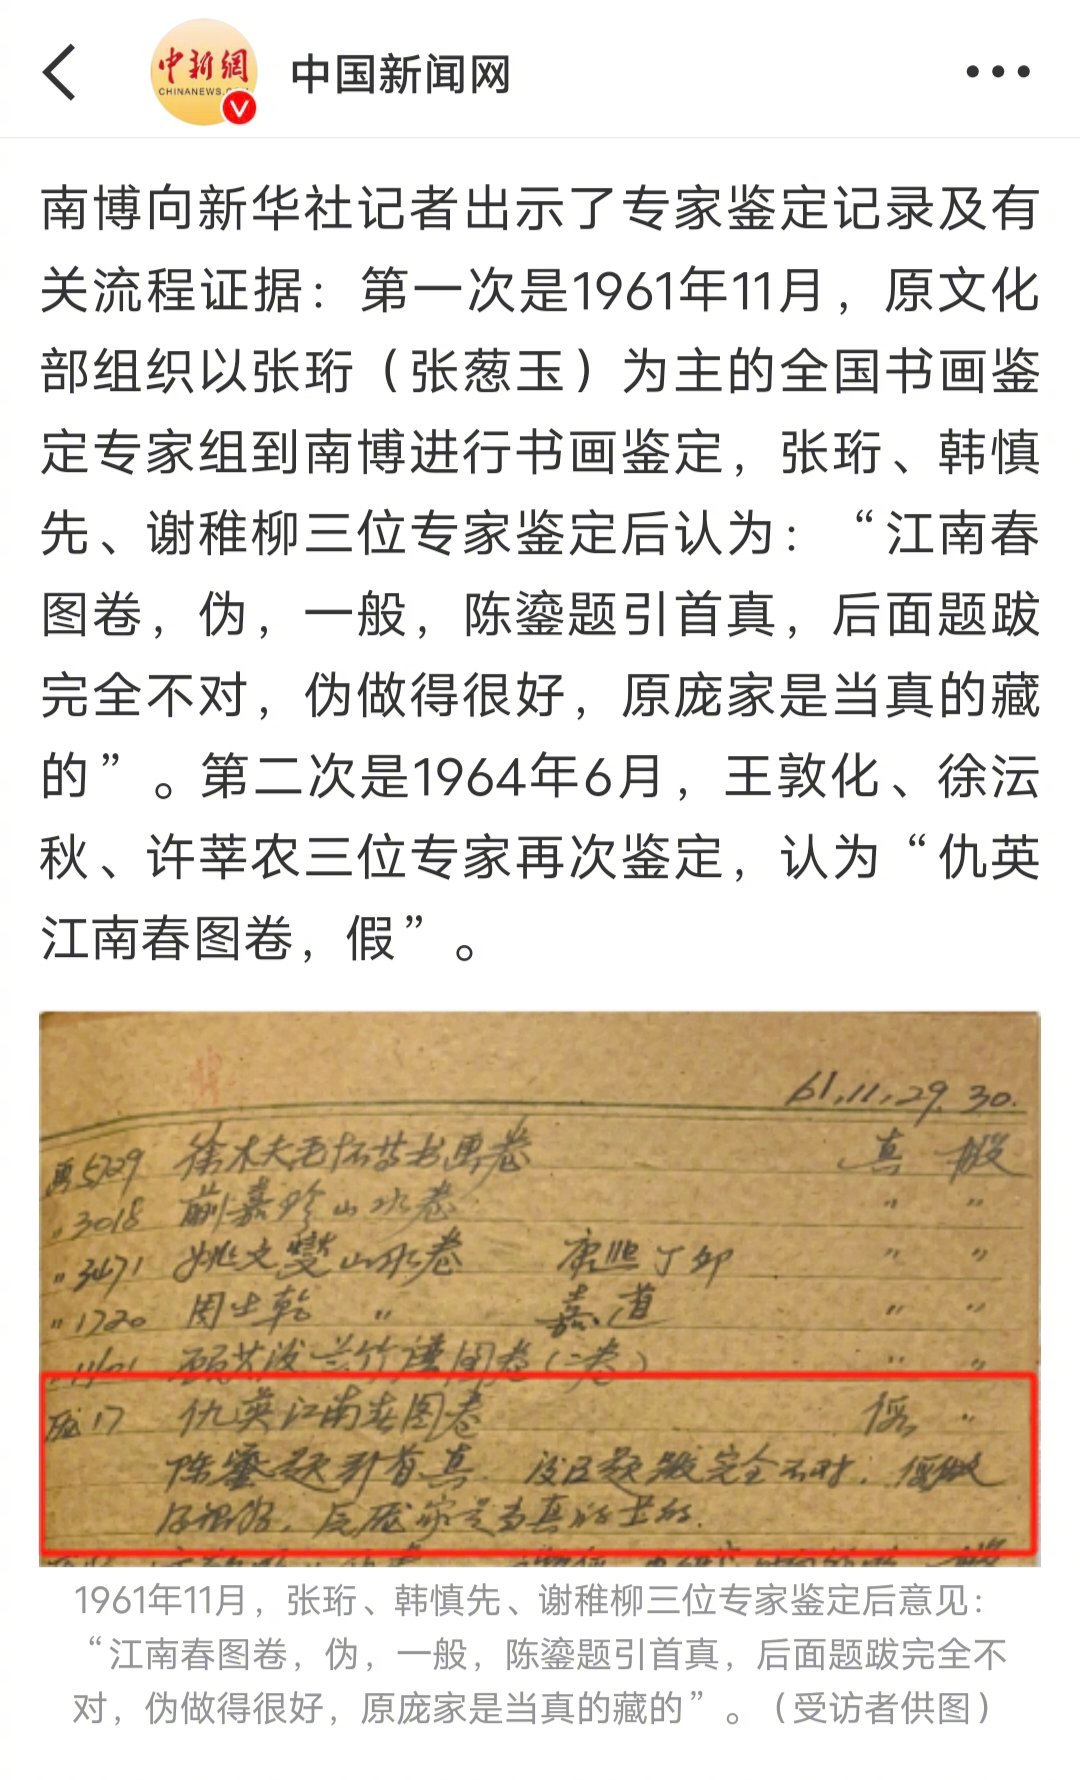 中新網
CHINANEWS
中国新闻网
南博向新华社记者出示了专家鉴定记录及有
关流程证据：第一次是1961年11月，原文化
部组织以张珩（张葱玉）为主的全国书画鉴
定专家组到南博进行书画鉴定，张珩、韩慎
先、谢稚柳三位专家鉴定后认为：“江南春
图卷，伪，一般，陈鎏题引首真，后面题跋
完全不对，伪做得很好，原庞家是当真的藏
的”。第二次是1964年6月，王敦化、徐沄
秋、许莘农三位专家再次鉴定，认为“仇英
江南春图卷，假”。
61.11.29.30.
5729 徐木夫毛怀书画卷 真 一般
〃3018 嘉珍山水卷 〃 〃
〃3471 姚文燮山水卷 康熙丁卯 〃 〃
〃1720 周 乾 〃 嘉道 〃 〃
图卷（二卷） 〃 〃
庞17 仇英江南春图卷 伪 〃
陈鎏题引首真. 后面题跋完全不对. 伪做
得很好. 原庞家是当真的
1961年11月，张珩、韩慎先、谢稚柳三位专家鉴定后意见：
“江南春图卷，伪，一般，陈鎏题引首真，后面题跋完全不
对，伪做得很好，原庞家是当真的藏的”。（受访者供图）